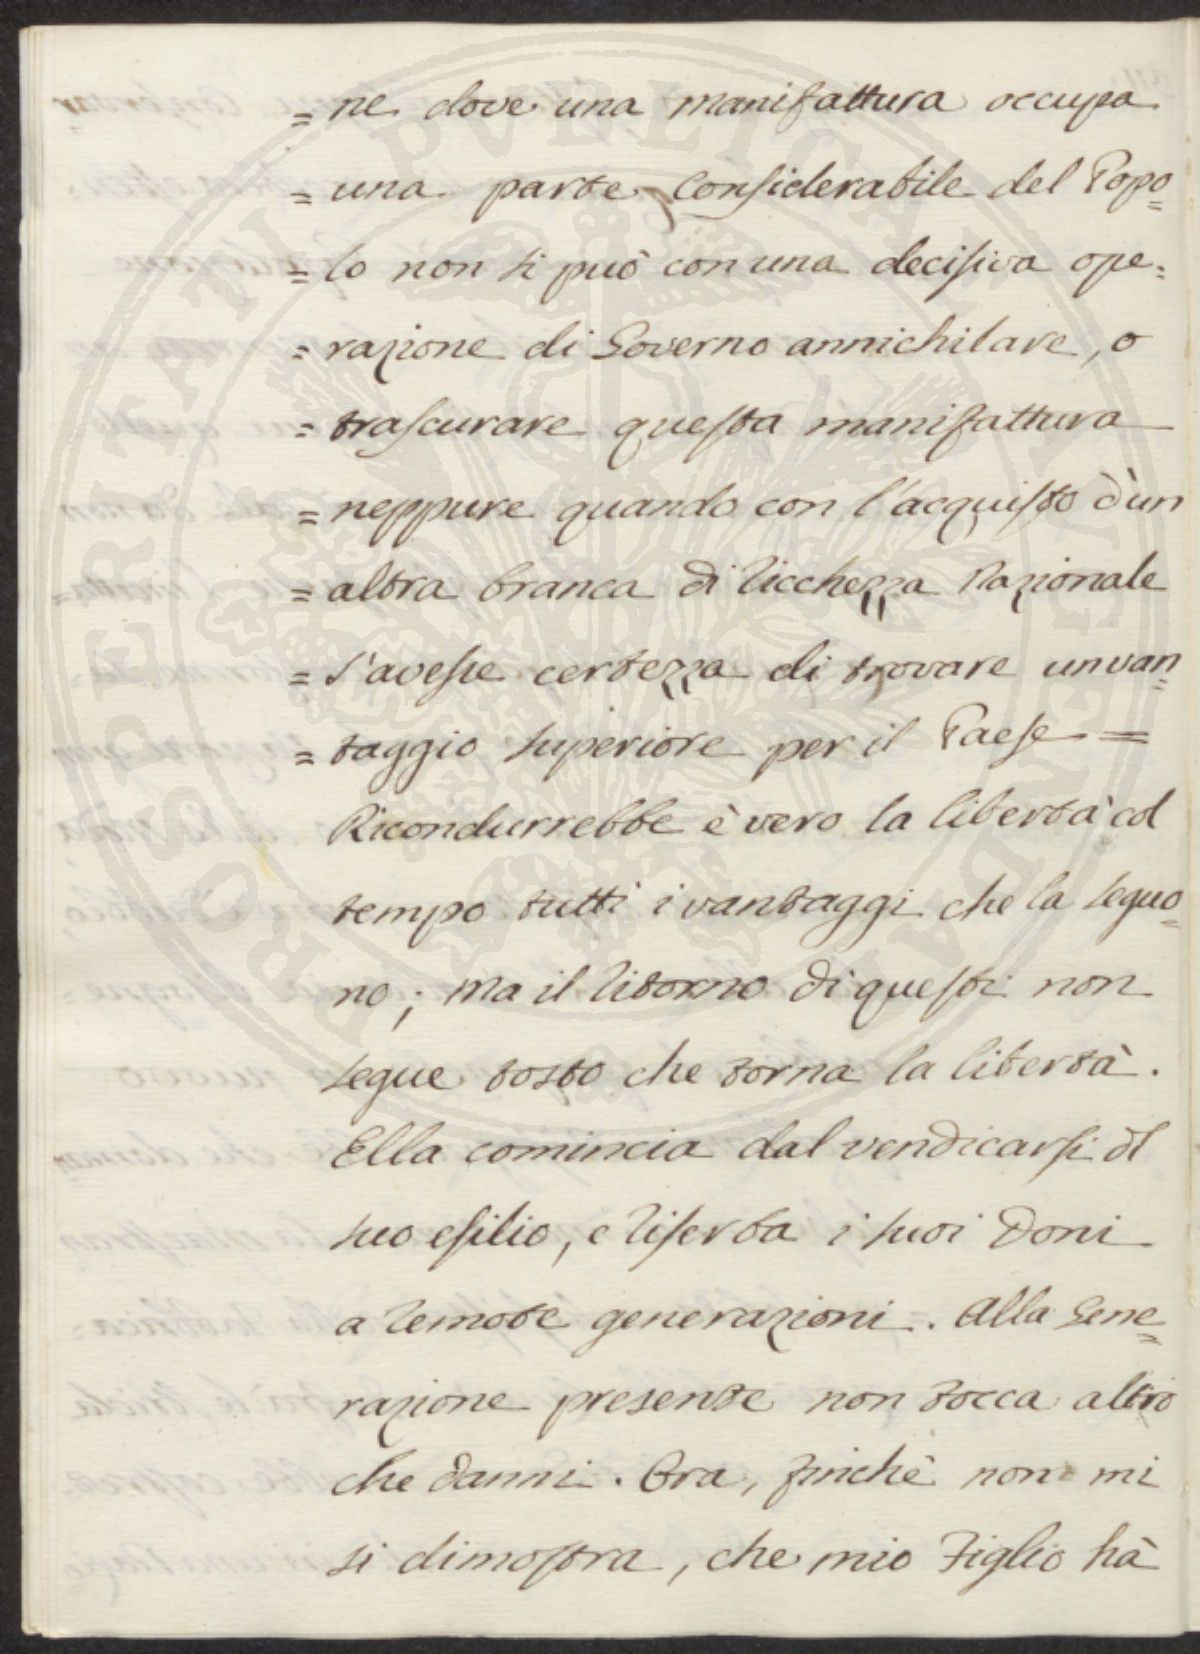 = ne dove una manifattura occupa
= una parte considerabile del Popo=
= lo non si può con una decisiva ope=
= razione di Governo annichilare, o
= trascurare questa manifattura
= neppure quando con l'acquisto d'un
= altra branca di ricchezza Nazionale
= s'avesse certezza di trovare un van=
= taggio superiore per il Paese =
Ricondurrebbe è vero la libertà col
tempo tutti i vantaggi che la seguo=
no; ma il ritorno di questi non
segue tosto che torna la libertà.
Ella comincia dal vendicarsi dl
suo esilio, e riserba i suoi doni
a remote generazioni. Alla Gene=
razione presente non tocca altro
che danni. Ora, finchè non mi
si dimostra, che mio Figlio hà
PROSPERITATI PVBLICAE AVGENDAE